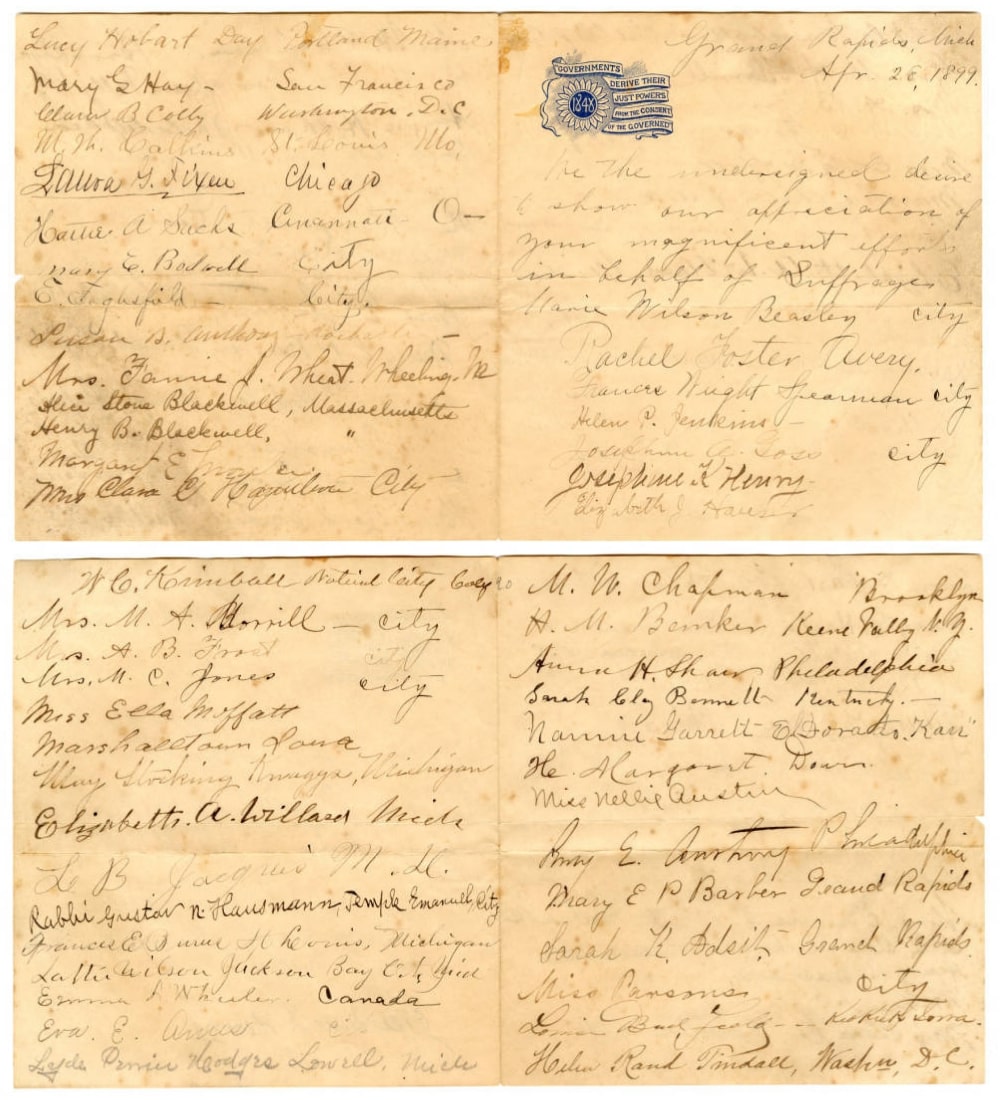 Lucy Hobart Day Portland Maine
Mary G Hay - San Francisco
Clara B Colby Washington, D.C
St. Louis Mo.
Laura G. Fixen Chicago
Hattie A Sachs Cincinnati - O-
Mary E. Bodwell City
E. City.
Susan B. Anthony -
Mrs. Fannie J. Wheat. Wheeling.
Alice Stone Blackwell, Massachusetts
Henry B. Blackwell, "
Margaret E
Mrs Clara C City
Grand Rapids, Mich
Apr. 1899.
GOVERNMENTS
DERIVE THEIR
JUST POWERS
FROM THE CONSENT
OF THE GOVERNED
1848
We the undersigned desire
to show our appreciation of
your magnificent efforts
in behalf of Suffrage
Marie Wilson Beasley city
Rachel Foster Avery.
Frances Wright Spearman city
Helen P. Jenkins -
Josephine A. Goss city
Josephine K Henry.
Elizabeth J. Hauser
W C. Kimball National City
Mrs. M. A. - city
Mrs. A. B. Frost city
Mrs. M. C. Jones city
Miss Ella Moffatt
Marshalltown Iowa
May Stocking Knaggs, Michigan
Elizabeth. A. Willard Mich
L B M.D.
Rabbi Gustav N. Hausmann, Temple Emanuel, City
Frances E St Louis, Michigan
Wilson Jackson Bay
Emma Wheeler. Canada
Eva. E.
Hodges Lowell, Mich
M. W. Chapman Brooklyn
H. M. Keene Vally N.Y.
Anna H. Shaw Philadelphia
Sarah Clay Bennett Kentucky. -
Nannie Garrett
Margaret
Miss Nellie Austin
E. Anthony Philadelphia
Mary E P Barber Grand Rapids
Sarah K. Adsit, Grand Rapids.
Miss Parsons City
Keokuk Iowa.
Helen Rand Tindall, Washn, D.C.